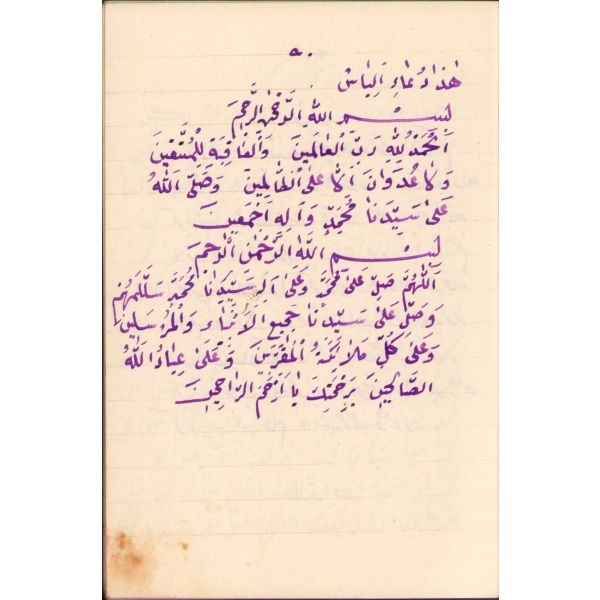 ٥٠
هٰذا دُعاءِ اَلِباسْ
بِسْمِ اللّٰهِ الرَّحْمٰنِ الرَّحِيمِ
اَلْحَمْدُ لِلّٰهِ رَبِّ الْعَالَمِينَ وَالْعَاقِبَةِ لِلْمُتَّقِينَ
وَلَا عُدْوَانَ اِلَّا عَلَى الظَّالِمِينَ وَصَلَّى اللّٰهُ
عَلَى سَيِّدِنَا مُحَمَّدٍ وَاٰلِهِ اَجْمَعِينَ
بِسْمِ اللّٰهِ الرَّحْمٰنِ الرَّحِيمِ
اَللّٰهُمَّ صَلِّ عَلَى مُحَمَّدٍ وَعَلَى اٰلِ سَيِّدِنَا مُحَمَّدٍ
وَصَلِّ عَلَى سَيِّدِنَا جَمِيعِ الْاَنْبِيَاءِ وَالْمُرْسَلِينَ
وَعَلَى كُلِّ مَلَائِكَةِ الْمُقَرَّبِينَ وَعَلَى عِبَادُ اللّٰهُ
الصَّالِحِينَ بِرَحْمَتِكَ يَا اَرْحَمَ الرَّاحِمِينَ